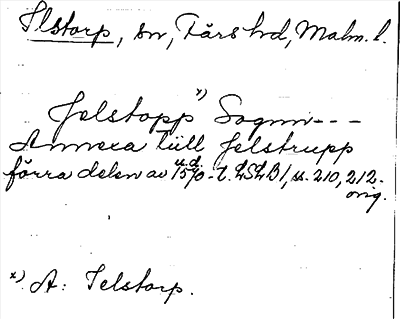 Ilstorp, sn, Färs hd, Malm. l.
Jelstopp x) Sogun - - -
Annexa tiill Jelstrupp
förra delen av u.d. 1570-t. LSLB1, s. 210, 212.
orig.
x) A: Ielstorp.